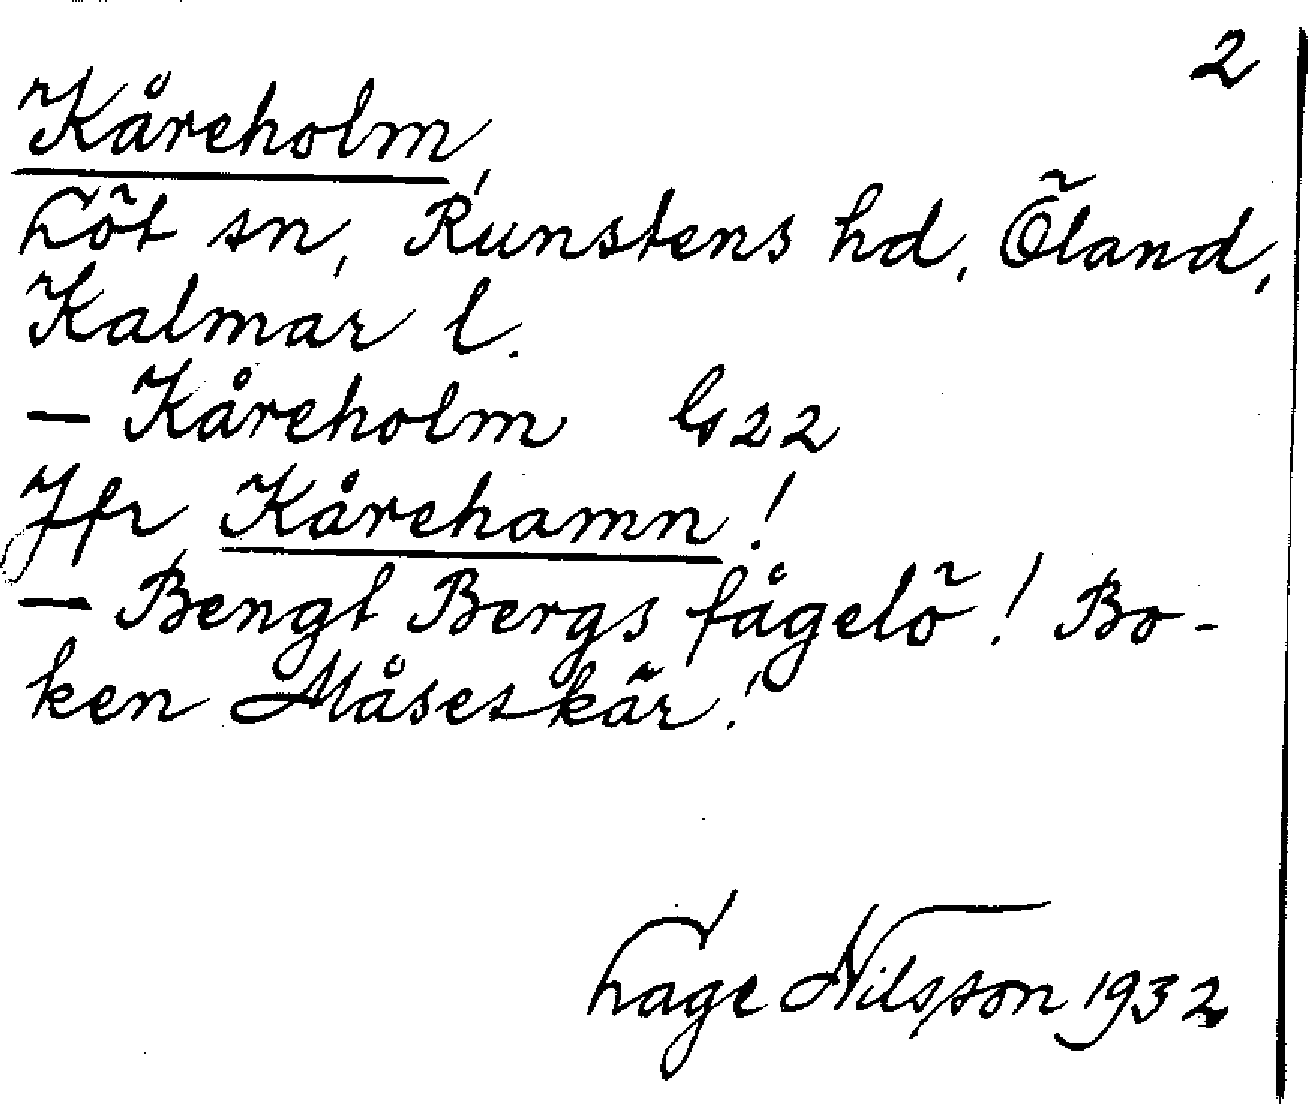 2
Kåreholm,
Löt sn, Runstens hd, Öland,
Kalmar l.
— Kåreholm Gs 22
Jfr Kårehamn!
— Bengt Bergs fågelö! Bo-
ken Måseskär!
Lage Nilsson 1932